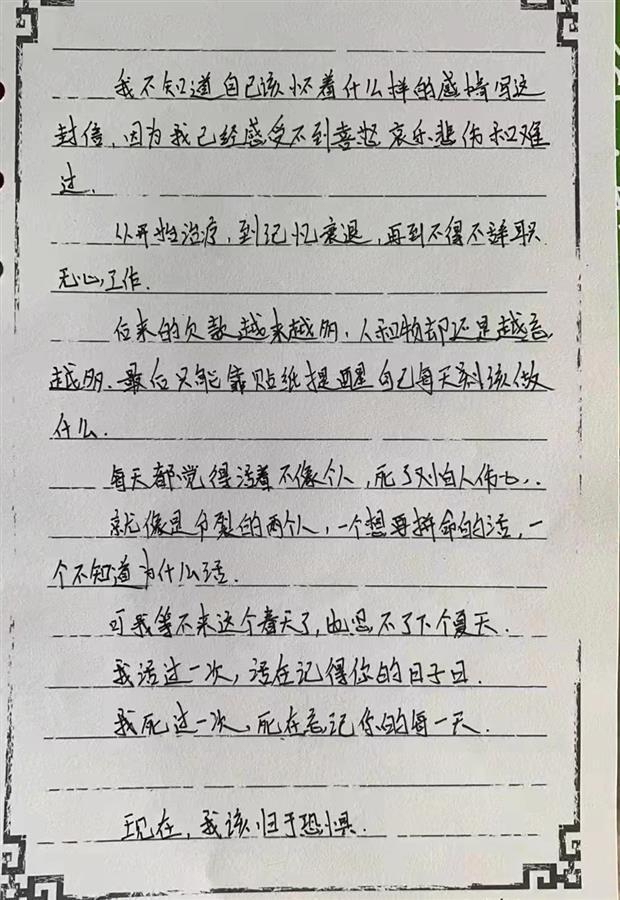 我不知道自己该怀着什么样的感情写这
封信，因为我已经感受不到喜怒哀乐悲伤和难
过．
从开始治疗，到记忆衰退，再到不得不辞职
无心工作．
后来的欠款越来越多，人和物却还是越忘
越多．最后只能靠贴纸提醒自己每天到该做
什么．
每天都觉得活着不像个人，死了又怕人伤心．
就像是分裂的两个人，一个想要拼命的活，一
个不知道为什么活．
可我等不来这个春天了，也 不了下个夏天．
我活过一次，活在记得你的日子
我死过一次，死在忘记你的每一天．
现在，我该归于恐惧．